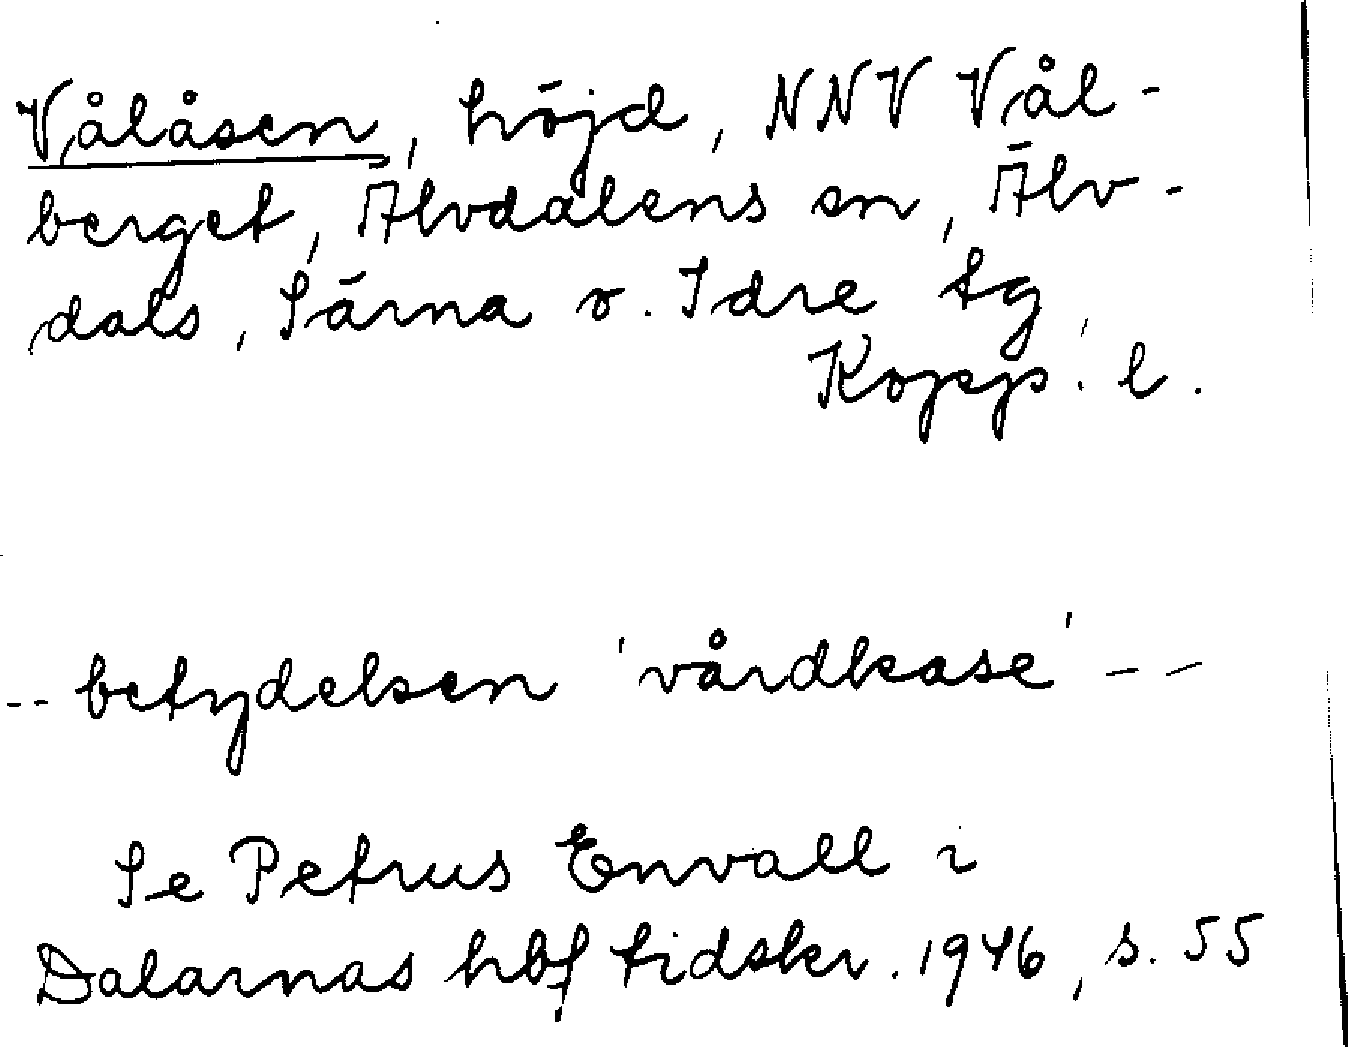 Vålåsen, höjd, NNV Vål-
berget, Älvdalens sn, Älv-
dals, Särna o. Idre tg,
Kopp. l.
-- betydelsen 'vårdkase' --
Se Petrus Envall i
Dalarnas hbf tidskr. 1946, s. 55